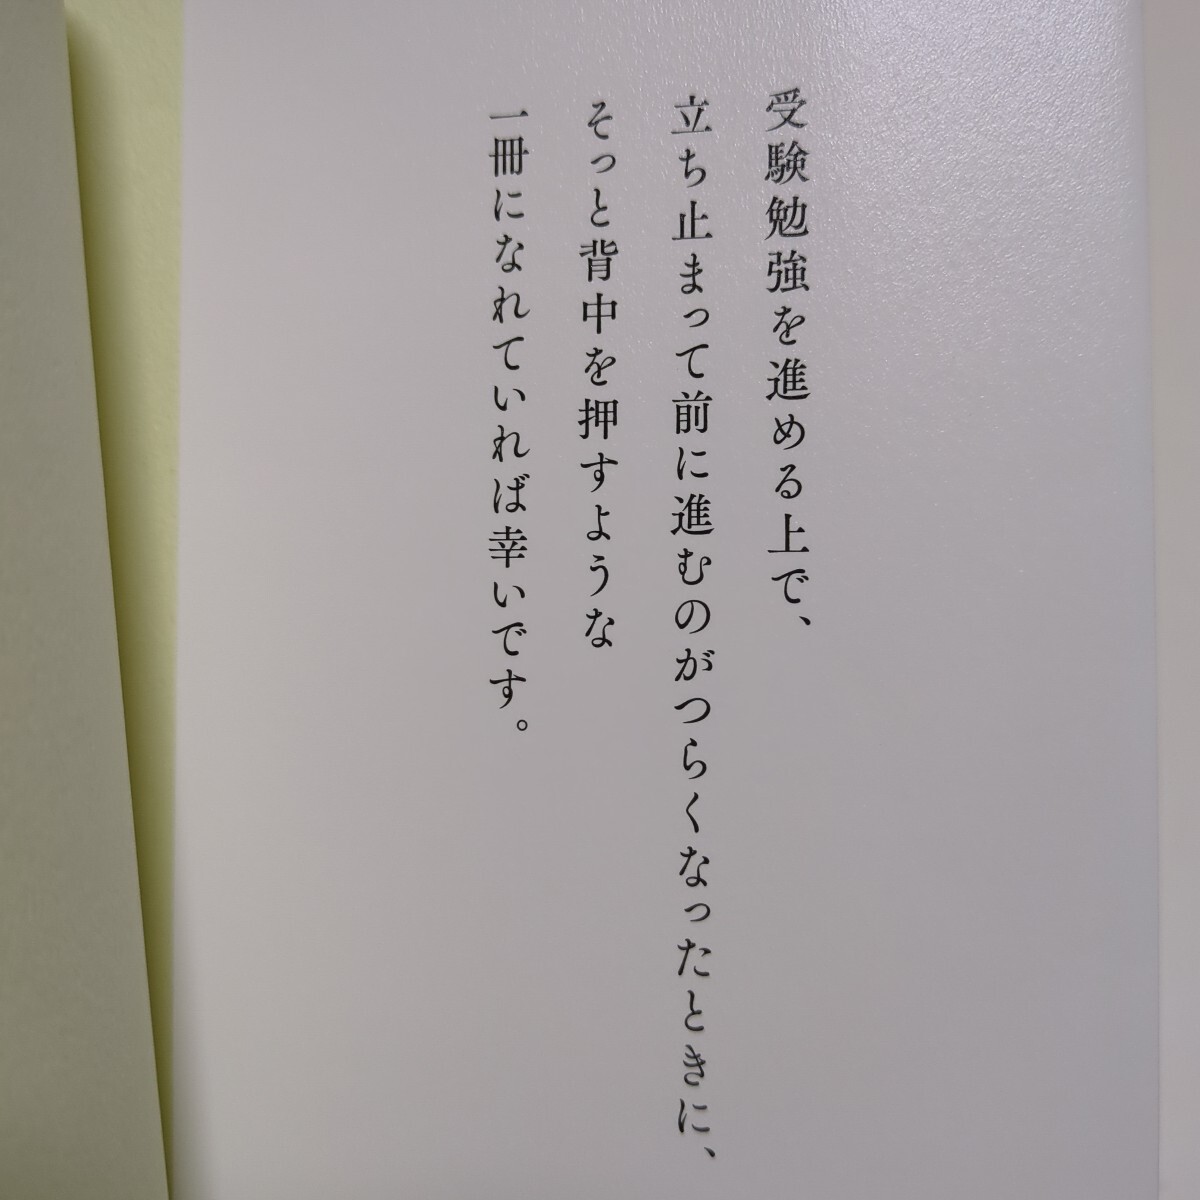 受験勉強を進める上で、
立ち止まって前に進むのがつらくなったときに、
そっと背中を押すような
一冊になれていれば幸いです。